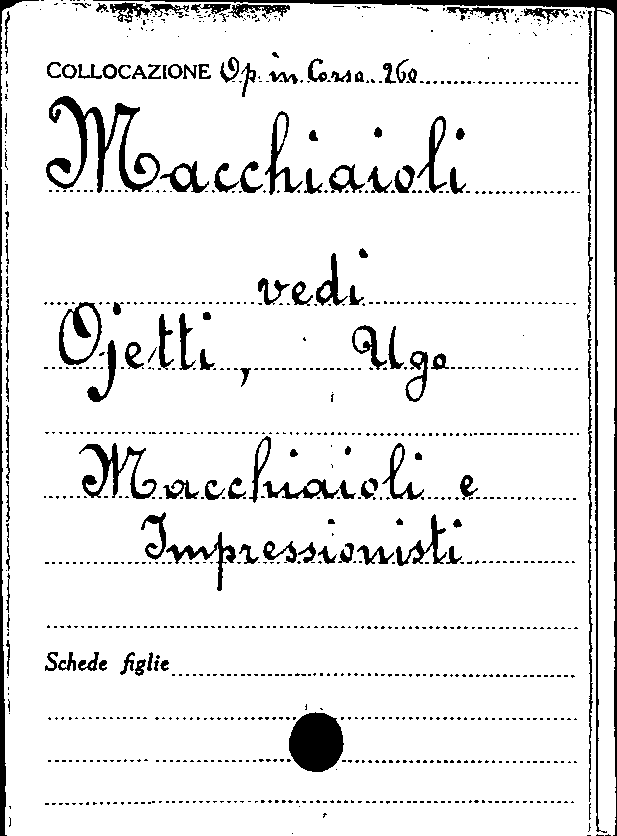 COLLOCAZIONE Op. in Corso. 260
Macchiaioli
vedi
Ojetti, Ugo
Macchiaioli e
Impressionisti
Schede figlie